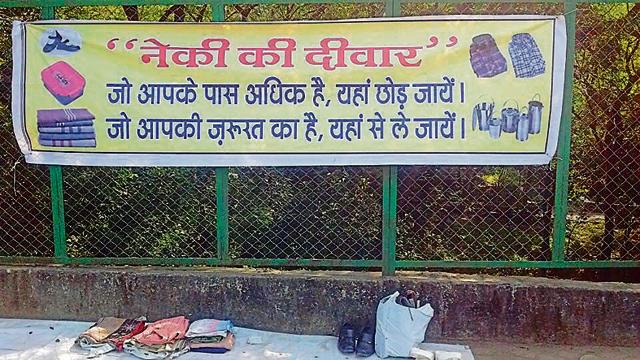 “नेकी की दीवार”
जो आपके पास अधिक है, यहां छोड़ जायें।
जो आपकी ज़रूरत का है, यहां से ले जायें।